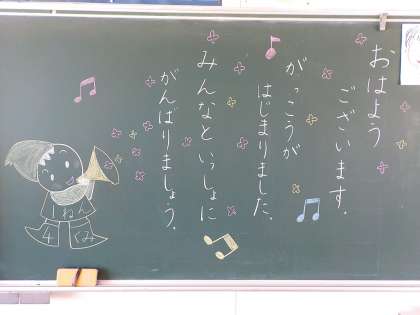 おはよう
ございます.
がっこうが
はじまりました.
みんなといっしょに
がんばりましょう.
1ねん
4くみ